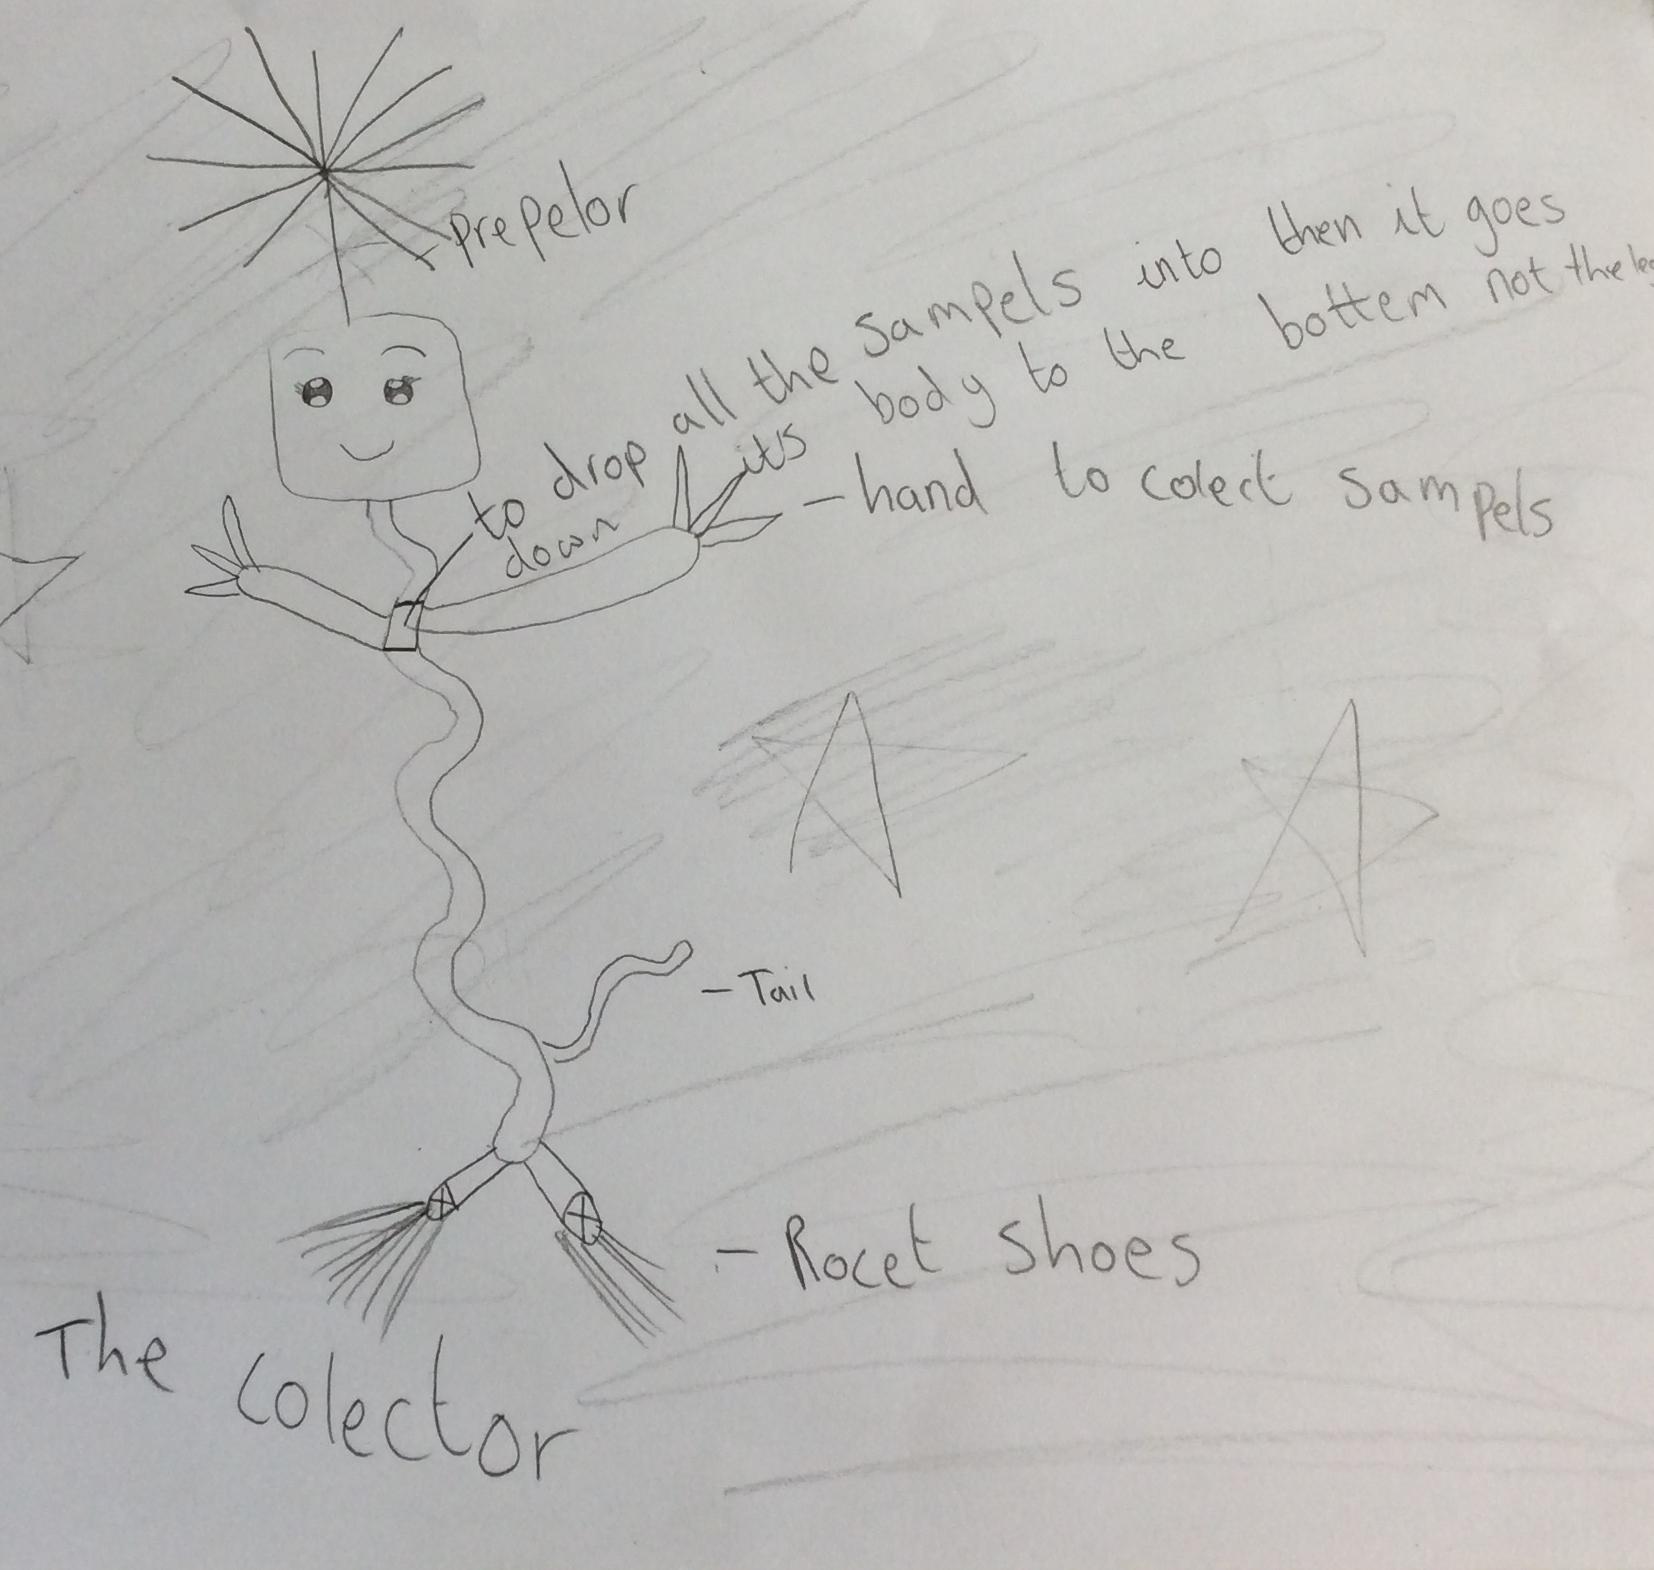 prepelor
to drop all the sampels into then it goes
down its body to the bottem not the
hand to colect sampels
Tail
Rocet shoes
The colector